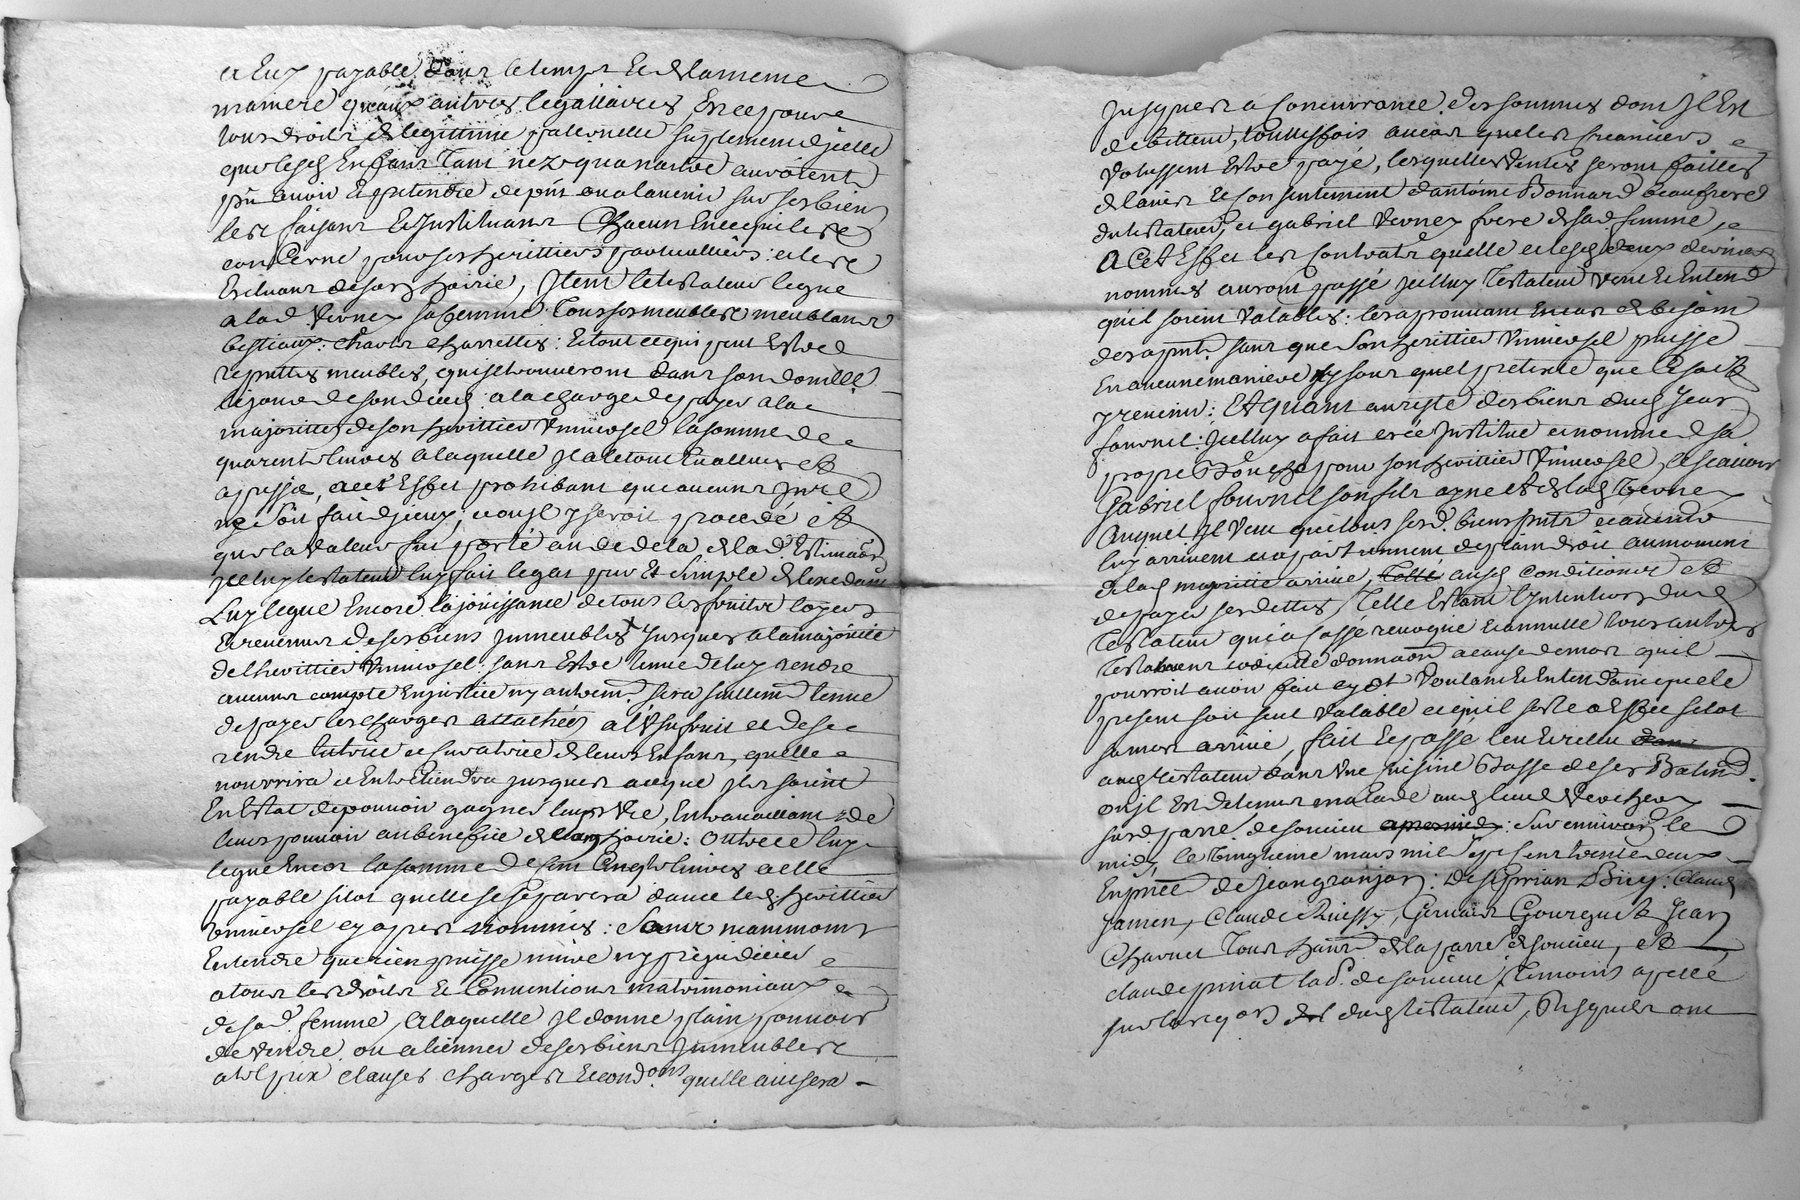 a Eux payable dans le temps Et de la meme
maniere qu'aux autres legataires Et ce pour
tous droits de legittime paternelle suplement dicelle
que lesd Enfans Tant nez qua naitre auroient
pû avoir Et pretendre de pnt ou a lavenir sur ses biens
les faisant Et Instituant Chacun En ce qui les
conCerne pour ses herittiers particulliers : et les
Excluant de son hoirie, Item le testateur legue
a lad Verney sa femme Tous ses meubles meublants
bestiaux : chards charrettes : Et tout ce qui peut Estre
reputtés meubles, qui se trouveront dans son domille
le jour de son deces : a la charge de payer a la
majorittes de son herittier Vniversel la somme de
quarente livres a laquelle Il a le tout Evallues et
apressie, a cet Effet prohibant que aucuns Inre
ne soit fait djceux, ou sil y seroit procedé et
que la valleur fut porté au de dela de lad Estimaôn
Jcelluy testateur luy fait legat pur Et simple de lexcedant
Luy legue Encore la joüissance de tous les fruits loyers
Et revenus de ses biens Jmmeubles Jusques a la majorité
de l'herittier Vniversel sans Estre tenue de luy rendre
aucuns compte En justice ny autremt sera seullemt tenue
de payer les charges attachées a l'Vsufruit et de se
rendre tutrice et curatrice de leurs Enfans, quelle
nourrira et Entretiendra jusques a ce que jls soient
En Estat de pouvoir gagner leurs Vie, En travaillant de
leurs pouvoir au benefice de hoirie : Outre ce luy
legue Encor la somme de Cinqte livres a elle
payable sitot quelle se separera davec led herittier
Vniversel cy apres nommés : Sans neammoins
Entendre que rien puisse nuire ny prejudicier
a tous les droits Et Conventions matrimoniaux
de sad. femme, a laquelle Il donne plain pouvoir
de Vendre ou alienner de ses biens Immeubles
a tel prix clauses charges Et condons quelle avisera
Jusques a Concurrance des sommes dont Jl Est
debitteur, touttesfois aucas que les creanciers
Volussent Estre payé, lesquelles Ventes seront faittes
de lavis Et Consentement d'antoine Bonnard beaufrere
du testateur, et gabriel Verney frere de sad femme,
A Cet Effet les Contrats quelle et lesd deux derniers
nommés auront passé jcelluy Testateur Veut Et Entend
quil soient Valables : les aprouvant En cas de besoin
des apnt sans que son herittier Vniversel puisse
En aucune maniere ny sous quel pretexte que Ce soit
y revenir : Et quant au reste des biens dud Jean
fournel : jcelluy a fait creé Institué et nommé de sa
propre Bouche pour son herittier Vniversel, scavoir
Gabriel fournel son fils ayné Et de lad Verney
Auquel Il Veut que tous sesd. biens pnts et avenir
luy arrivent et apartiennent de plain droit au moment
de lad majoritté arrivé, Telle aux Conditions et
de payer ses dettes, Telle Estant l'Intentions dud
Testateur qui a cassé revoqué Et annullé tous autres
Testament codicille donnaôn a cause de mort quil
pourroit avoir fait cy dt Voulant Et Entendant que le
present soit seul Valable et quil sorte a Effet sitot
sa mort arrivé, fait Et passé leu Et relleu
aud testateur dans Vne cuisine Basse de ses Batimt.
ou jl Est detenu malade aud lieu de Verchery
surd. parre de soucieu apres midy : Survenir le
midy, le Vingtieme mars mil sept cent trente deux
En pnce de Jean granjon : De sBrian Dicy : Claude
Jamen, Claude Ruissy, Gernain Gourgue Et Jean
Charvet Tous habts de la parre de soucieu, et
claude piniat lad. de soucieu, Temoins apellé
par lesd dud testateur, Lesquels ont